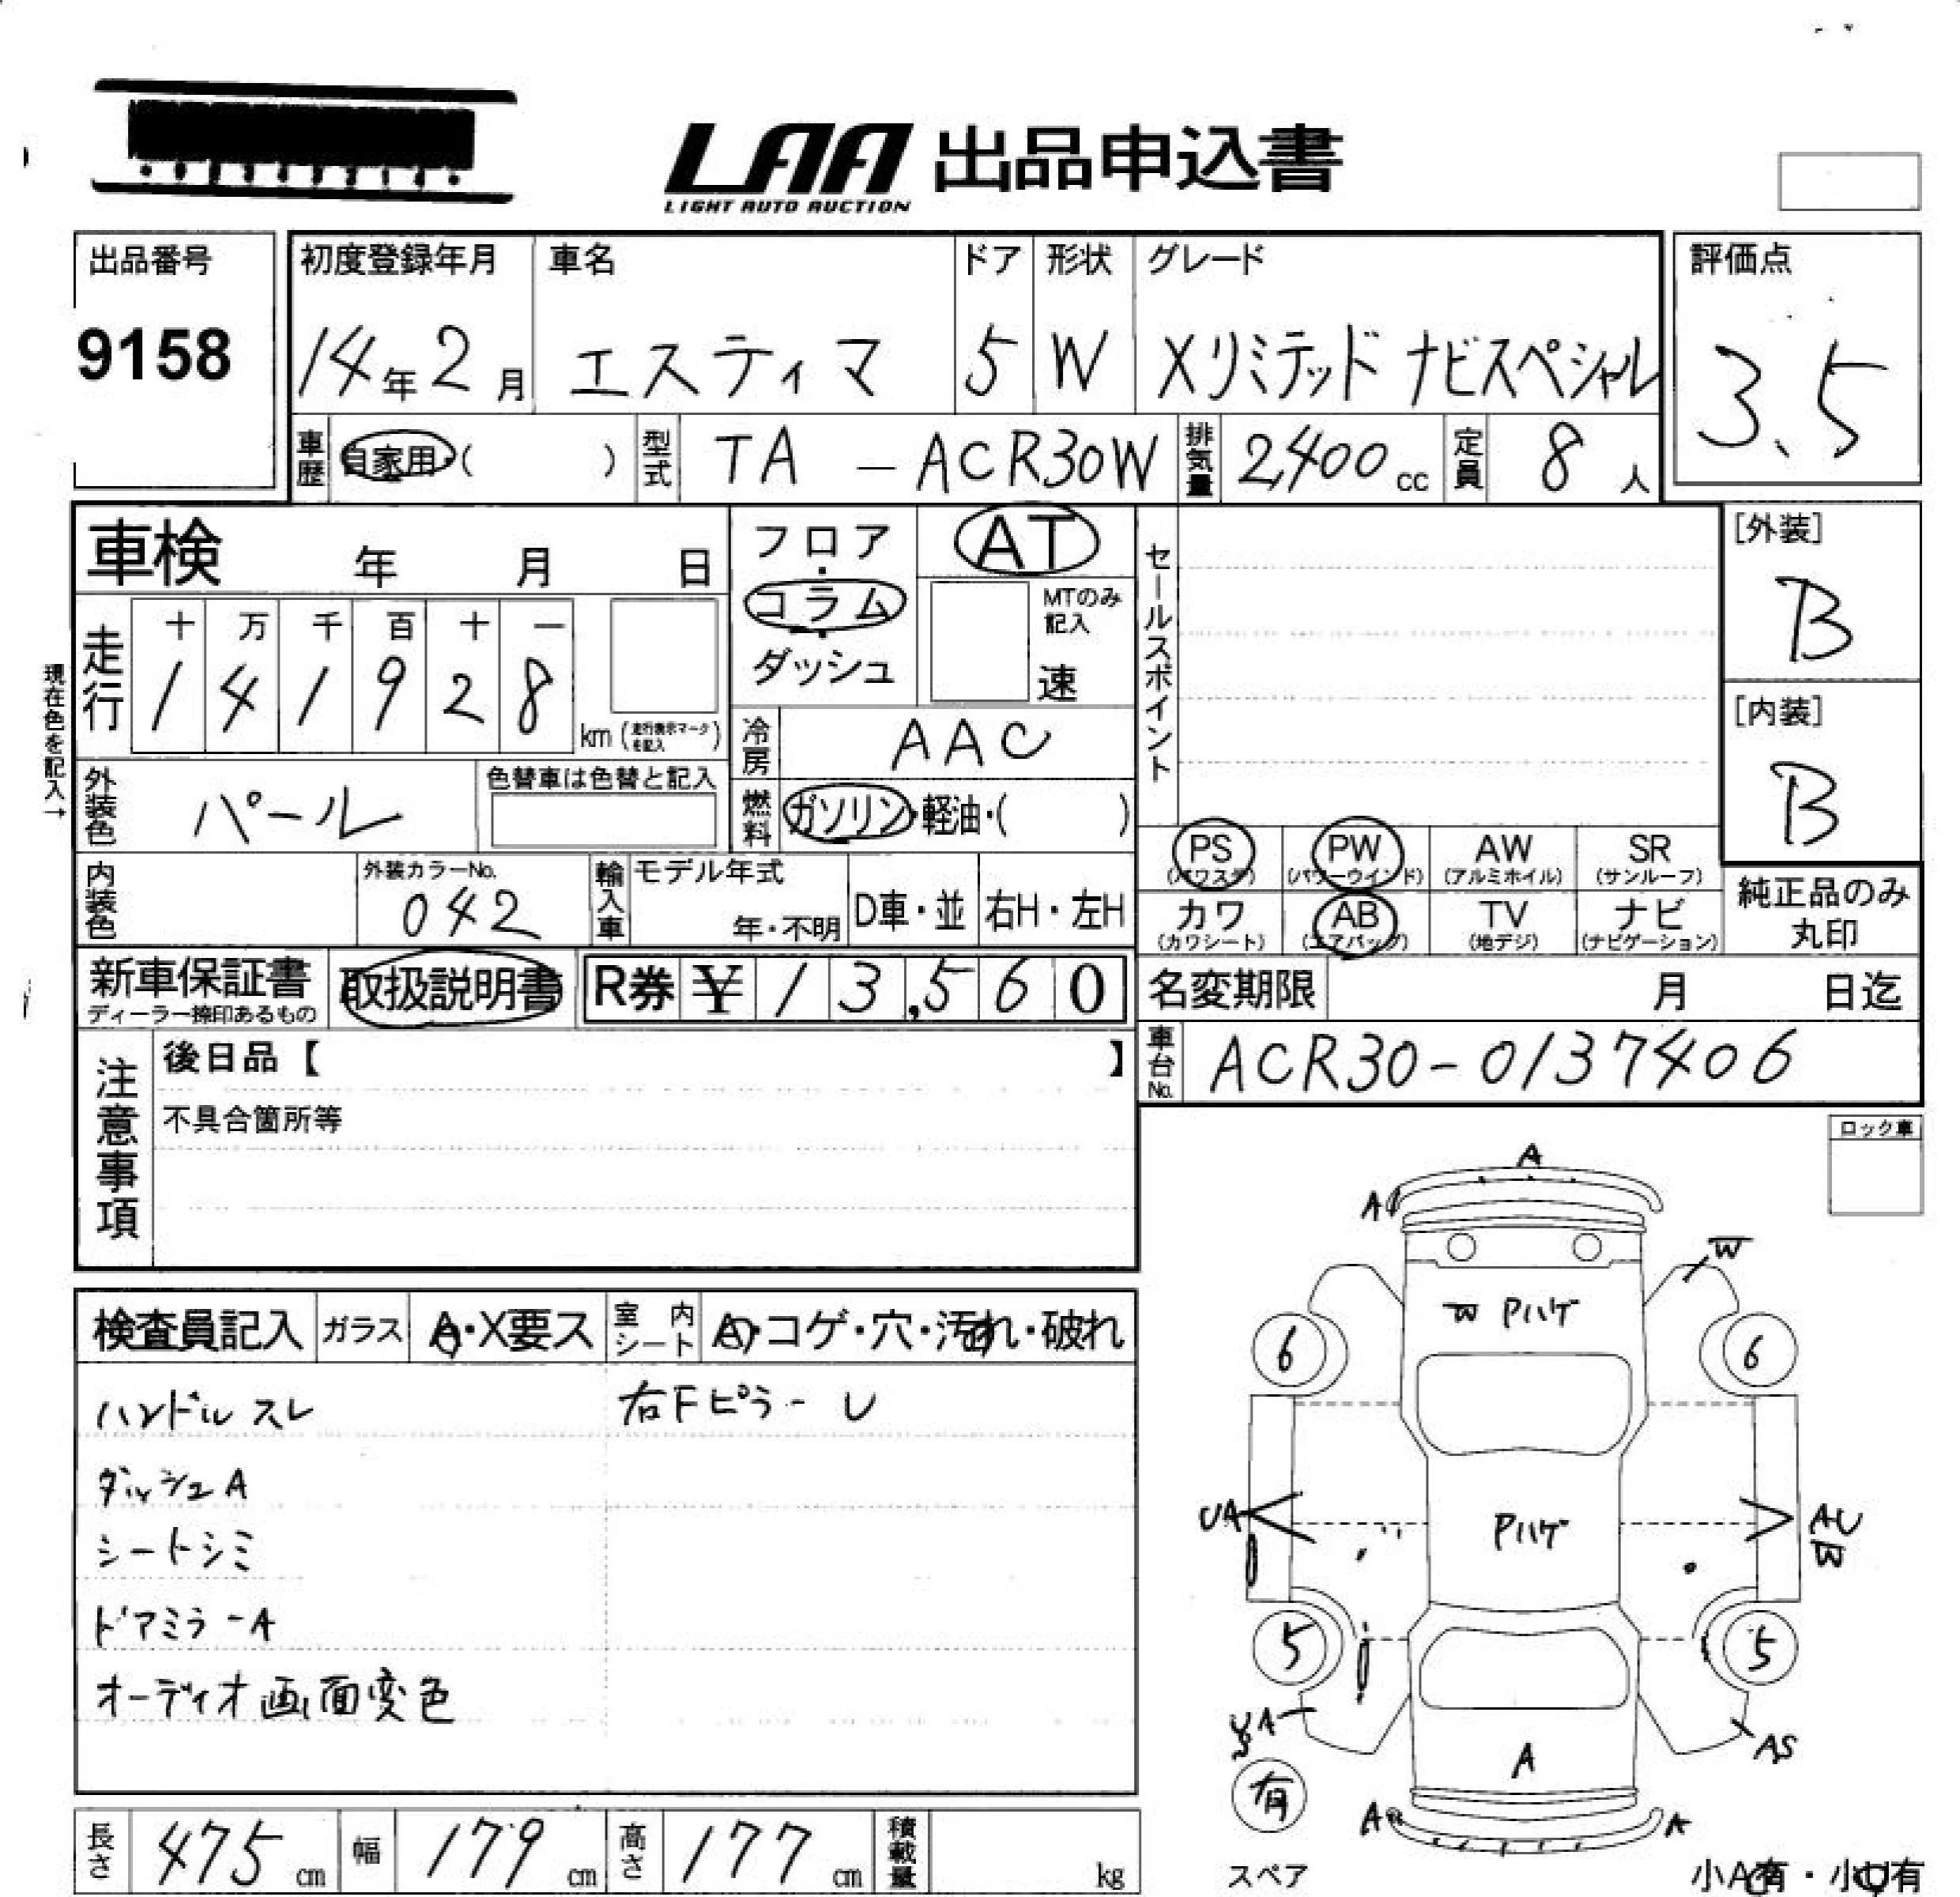 LAA 出品申込書
LIGHT AUTO AUCTION
出品番号
9158
初度登録年月 車名 ドア 形状 グレード
14年2月 エスティマ 5 W Xリミテッド ナビスペシャル
評価点
3.5
車歴 自家用・( ) 型式 TA - ACR30W 排気量 2,400cc 定員 8人
車検 年 月 日
フロア・コラム・ダッシュ
AT
MTのみ記入
速
セールスポイント
[外装]
B
[内装]
B
現在色を記入→
走行 十 万 千 百 十 一
1 4 1 9 2 8 km (走行表示マークを記入)
冷房 AAC
外装色 パール 色替車は色替と記入
燃料 ガソリン・軽油・( )
PS (パワステ) PW (パワーウインド) AW (アルミホイル) SR (サンルーフ)
カワ (カワシート) AB (エアバッグ) TV (地デジ) ナビ (ナビゲーション)
純正品のみ丸印
内装色 外装カラーNo. 042 輸入車 モデル年式 年・不明 D車・並 右H・左H
新車保証書 ディーラー捺印あるもの 取扱説明書 R券 ¥ 13,560
名変期限 月 日迄
車台No. ACR30-0137406
注意事項
後日品【 】
不具合箇所等
ロック車
検査員記入 ガラス A・X要ス 室内シート A・コゲ・穴・汚れ・破れ
ハンドルスレ 右Fピラー U
ダッシュA
シートシミ
ドアミラーA
オーディオ画面変色
A
A
W
W Pハゲ
6 6
UA Pハゲ AU
W
5 5
YA AS
S
A
有
A A
スペア 小A有・小U有
長さ 475cm 幅 179cm 高さ 177cm 積載量 kg